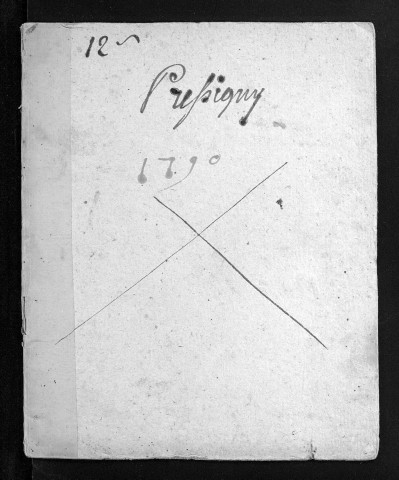 12
Pressigny
1790